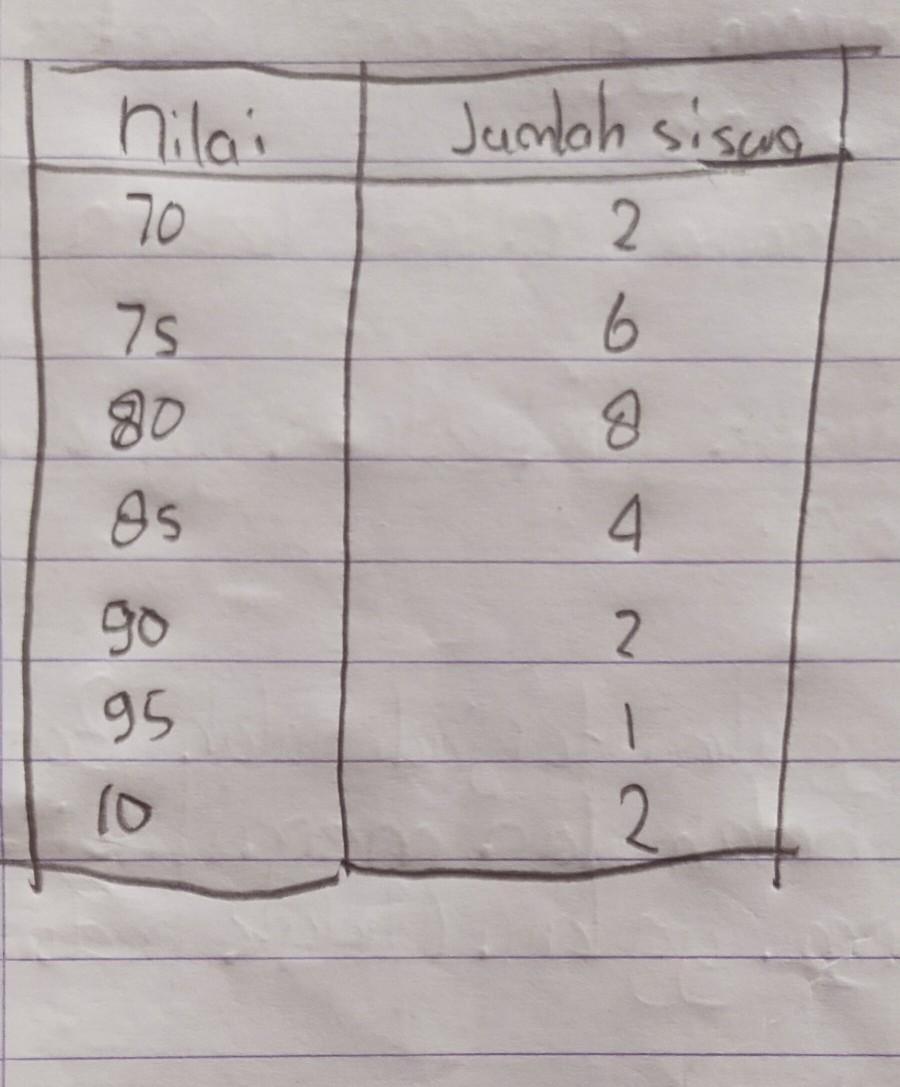 Nilai Jumlah siswa
70 2
75 6
80 8
85 4
90 2
95 1
10 2